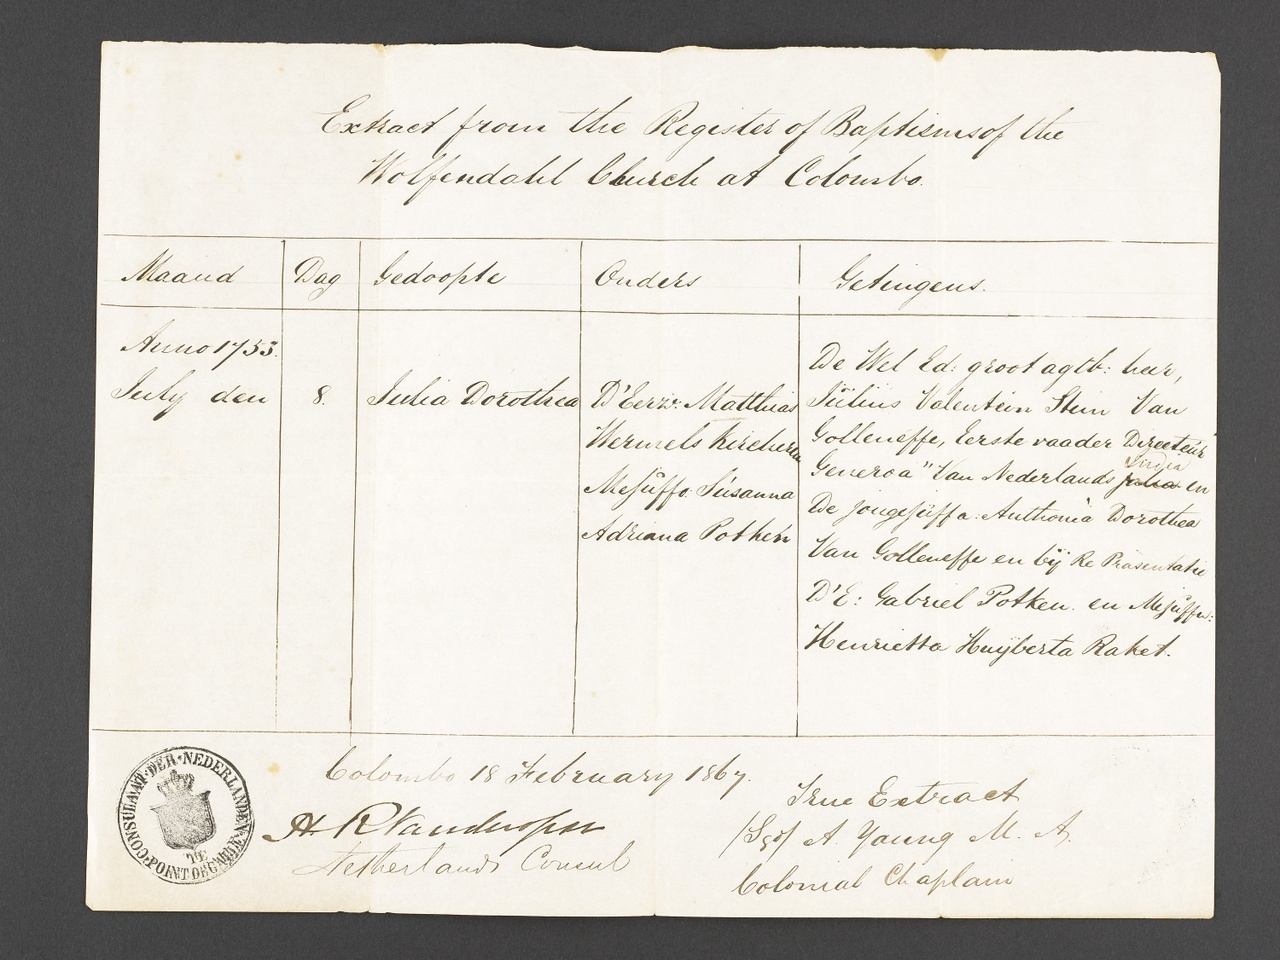 Extract from the Register of Baptisms of the
Wolfendahl Church at Colombo.
Maand Dag Gedoopte Ouders Getingens.
Anno 1753.
July den 8. Julia Dorothea
D'Eerzr: Matthias
Hermels Kircheren
Mejüffo Süsanna
Adriana Potken
De Wel Ed: groot agtb: heer,
Jülius Valentein Stein Van
Golleneffe, Eerste raader Directeür
Generaa" Van Nederlands India en
De jongejüffa: Anthonia Dorothea
Van Golleneffe en bÿ Re Präsentatie
D'E: Gabriel Potken en Mejüffw:
Henrietta Huÿberta Raket.
Colombo 18 February 1867.
Netherlands Consul
True Extract
/Sgd/ A. Young M. A.
Colonial Chaplain
CONSULAAT·DER·NEDERLANDEN
TE
CO·POINT DE GALLE